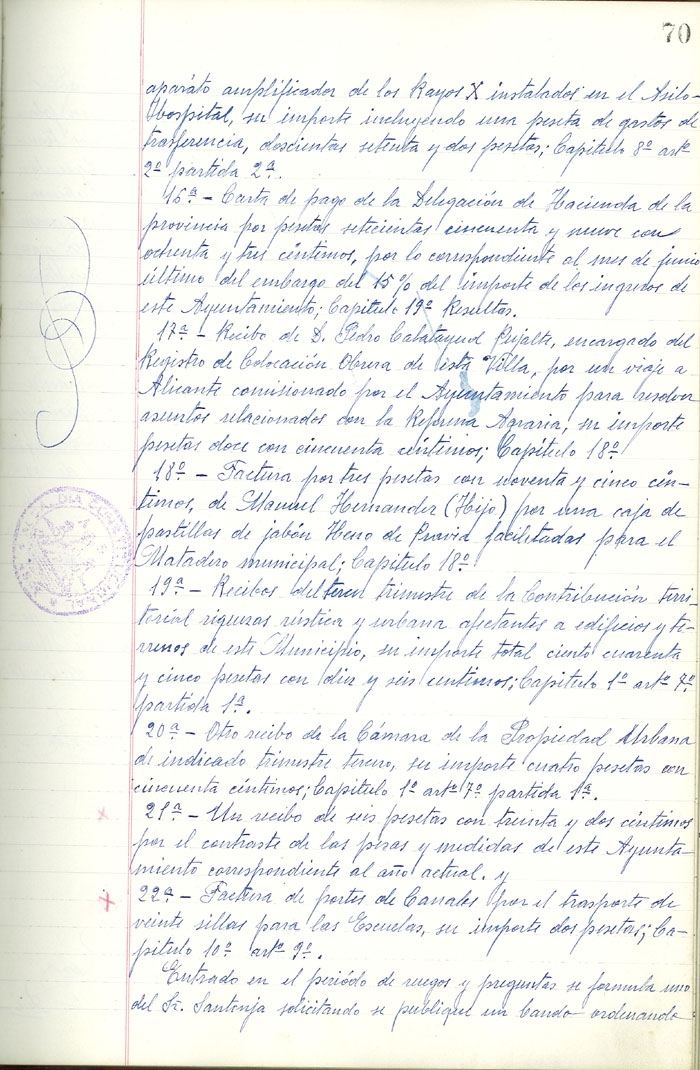 70
aparato amplificador de los Rayos X instalados en el Asilo-
hospital, su importe incluyendo una peseta de gastos de
trasferencia, doscientas setenta y dos pesetas; Capítulo 8º artº
2º partida 2ª.
16ª.- Carta de pago de la Delegación de Hacienda de la
provincia por pesetas setecientas cincuenta y nueve con
ochenta y tres céntimos, por lo correspondiente al mes de junio
último del embargo del 15% del importe de los ingresos de
este Ayuntamiento; Capítulo 19º Resultas.
17ª.- Recibo de D. Pedro Calatayud Pujalte, encargado del
Registro de Colocación Obrera de esta Villa, por un viaje a
Alicante comisionado por el Ayuntamiento para resolver
asuntos relacionados con la Reforma Agraria, su importe
pesetas doce con cincuenta céntimos; Capítulo 18º
18ª.- Factura por tres pesetas con noventa y cinco cén-
timos, de Manuel Hernandez (Hijo) por una caja de
pastillas de jabón Heno de Pravia facilitadas para el
Matadero municipal; Capítulo 18º
19ª.- Recibos del tercer trimestre de la Contribución terri-
torial riquezas rústica y urbana afectantes a edificios y te-
rrenos de este Municipio, su importe total ciento cuarenta
y cinco pesetas con diez y seis centimos; Capítulo 1º artº 7º
partida 1ª.
20ª.- Otro recibo de la Cámara de la Propiedad Urbana
de indicado trimestre tercero, su importe cuatro pesetas con
cincuenta céntimos; Capítulo 1º artº 7º partida 1ª.
21ª.- Un recibo de seis pesetas con treinta y dos céntimos
por el contraste de las pesas y medidas de este Ayunta-
miento correspondiente al año actual. y
22ª.- Factura de portes de Canales por el trasporte de
veinte sillas para las Escuelas, su importe dos pesetas; Ca-
pítulo 10º artº 9º.
Entrado en el periódo de ruegos y preguntas se formula uno
del Sr. Santonja solicitando se publique un bando ordenando